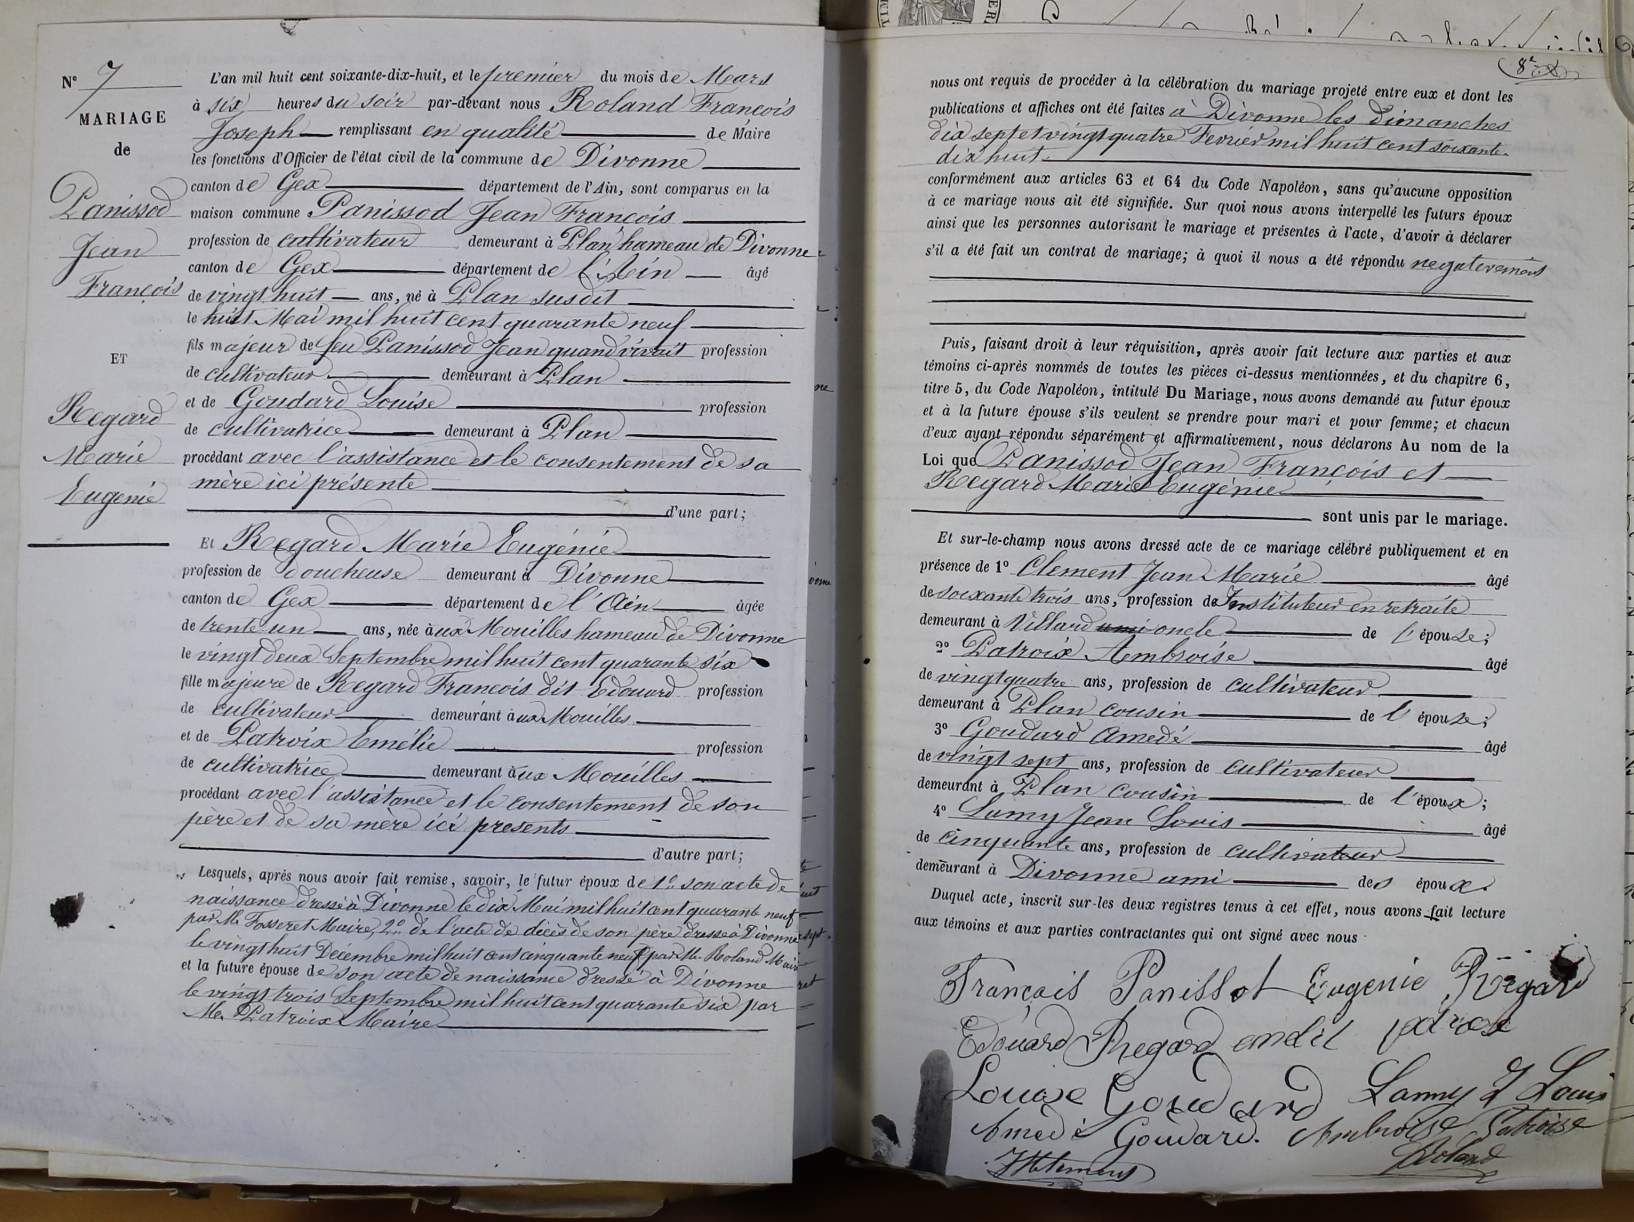 N° 7
MARIAGE
de
Panissod
Jean
François
ET
Regard
Marie
Eugénie
L'an mil huit cent soixante-dix-huit, et le premier du mois de Mars
à six heures du soir par-devant nous Roland François
Joseph remplissant en qualité de Maire
les fonctions d'Officier de l'état civil de la commune de Divonne
canton de Gex département de l'Ain, sont comparus en la
maison commune Panissod Jean François
profession de cultivateur demeurant à Plan hameau de Divonne
canton de Gex département de l'Ain âgé
de vingt huit ans, né à Plan susdit
le huit Mai mil huit cent quarante neuf
fils majeur de feu Panissod Jean quand vivait profession
de cultivateur demeurant à Plan
et de Goudard Louise profession
de cultivatrice demeurant à Plan
procédant avec l'assistance et le consentement de sa
mère ici présente
d'une part;
Et Regard Marie Eugénie
profession de doucheuse demeurant à Divonne
canton de Gex département de l'Ain âgée
de trente un ans, née aux Mouilles hameau de Divonne
le vingt deux Septembre mil huit cent quarante six
fille majeure de Regard François dit Edouard profession
de cultivateur demeurant aux Mouilles
et de Patroix Emélie profession
de cultivatrice demeurant aux Mouilles
procédant avec l'assistance et le consentement de son
père et de sa mère ici présents
d'autre part;
Lesquels, après nous avoir fait remise, savoir, le futur époux de 1° son acte de
naissance dressé à Divonne le dix Mai mil huit cent quarante neuf
par M. Fosseret Maire, 2° de l'acte de décès de son père dressé à Divonne
le vingt huit Décembre mil huit cent cinquante neuf par M. Roland Maire
et la future épouse de son acte de naissance dressé à Divonne
le vingt trois Septembre mil huit cent quarante six par
M. Patroix Maire
nous ont requis de procéder à la célébration du mariage projeté entre eux et dont les
publications et affiches ont été faites à Divonne les dimanches
dix sept et vingt quatre Fevrier mil huit cent soixante
dix huit
conformément aux articles 63 et 64 du Code Napoléon, sans qu'aucune opposition
à ce mariage nous ait été signifiée. Sur quoi nous avons interpellé les futurs époux
ainsi que les personnes autorisant le mariage et présentes à l'acte, d'avoir à déclarer
s'il a été fait un contrat de mariage; à quoi il nous a été répondu negativement
Puis, faisant droit à leur réquisition, après avoir fait lecture aux parties et aux
témoins ci-après nommés de toutes les pièces ci-dessus mentionnées, et du chapitre 6,
titre 5, du Code Napoléon, intitulé Du Mariage, nous avons demandé au futur époux
et à la future épouse s'ils veulent se prendre pour mari et pour femme; et chacun
d'eux ayant répondu séparément et affirmativement, nous déclarons Au nom de la
Loi que Panissod Jean François et
Regard Marie Eugénie
sont unis par le mariage.
Et sur-le-champ nous avons dressé acte de ce mariage célébré publiquement et en
présence de 1° Clement Jean Marie âgé
de soixante trois ans, profession de Instituteur en retraite
demeurant à Villard ami oncle de l'épouse;
2° Patroix Ambroise âgé
de vingt quatre ans, profession de cultivateur
demeurant à Plan cousin de l'épouse;
3° Goudard Amedé âgé
de vingt sept ans, profession de cultivateur
demeurant à Plan cousin de l'époux;
4° Lamy Jean Louis âgé
de cinquante ans, profession de cultivateur
demeurant à Divonne ami des époux.
Duquel acte, inscrit sur les deux registres tenus à cet effet, nous avons fait lecture
aux témoins et aux parties contractantes qui ont signé avec nous
François Panissot Eugenie Regard
Edouard Regard
Louise Goudard Lamy J Louis
Amedé Goudard. Ambroise Patroise
JM Clement Roland